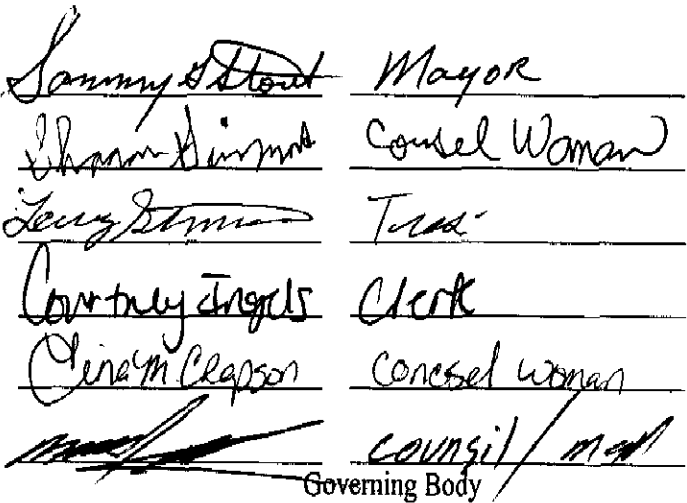 Sammy G Stout Mayor
Sharon Simmons Counsel Woman
Terry Treas.
Courtney Ingels Clerk
Tina M Clapson Concesel woman
counsil/man
Governing Body